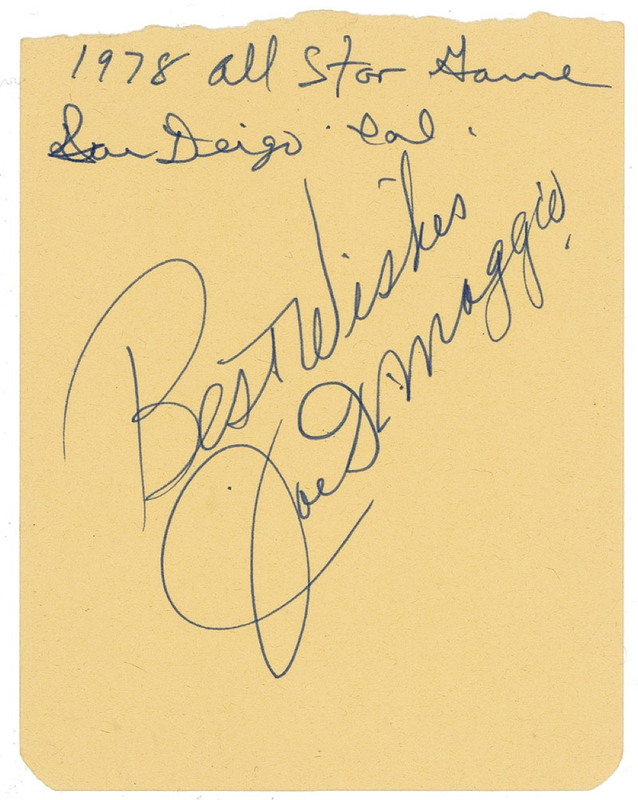 1978 all Star Game
San Deigo. Cal.
Best Wishes
Joe DiMaggio